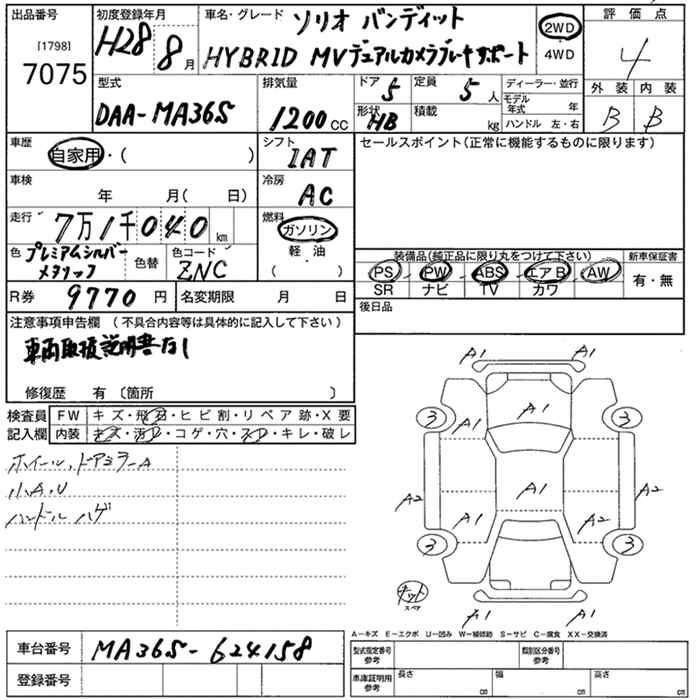 出品番号
[1798]
7075
初度登録年月
H28 8 月
車名・グレード
ソリオ バンディット
HYBRID MVデュアルカメラブレーキサポート
2WD
4WD
評価点
4
外装 内装
B B
型式
DAA-MA36S
排気量
1200 cc
ドア 5
定員 5 人
形状 HB
積載 kg
ディーラー・並行
モデル年式 年
ハンドル 左・右
車歴
自家用・( )
シフト
IAT
セールスポイント(正常に機能するものに限ります)
車検
年 月( 日)
冷房
AC
走行
7万1千040 km
燃料
ガソリン
軽・油
( )
色 プレミアムシルバーメタリック
色替
色コード
ZNC
装備品(純正品に限り丸をつけて下さい)
PS PW ABS エアB AW
SR ナビ TV カワ
新車保証書
有・無
R券 9770 円
名変期限 月 日
後日品
注意事項申告欄 (不具合内容等は具体的に記入して下さい)
車両取扱説明書なし
修復歴 有 〔箇所 〕
検査員記入欄
FW キズ・飛石・ヒビ割・リペア跡・X要
内装 キズ・汚レ・コゲ・穴・スレ・キレ・破レ
ホイール、ドアミラーA
小A、U
ハンドル ハゲ
A1 A1
3 A1 A1 3
A2 A1 A2
A1 A2
3 3
スペア
A1 A1
A-キズ E-エクボ U-凹み W-補修跡 S-サビ C-腐食 XX-交換済
車台番号 MA36S-624158
登録番号
型式指定番号 参考
類別区分番号 参考
車庫証明用 参考
長さ cm
幅 cm
高さ cm